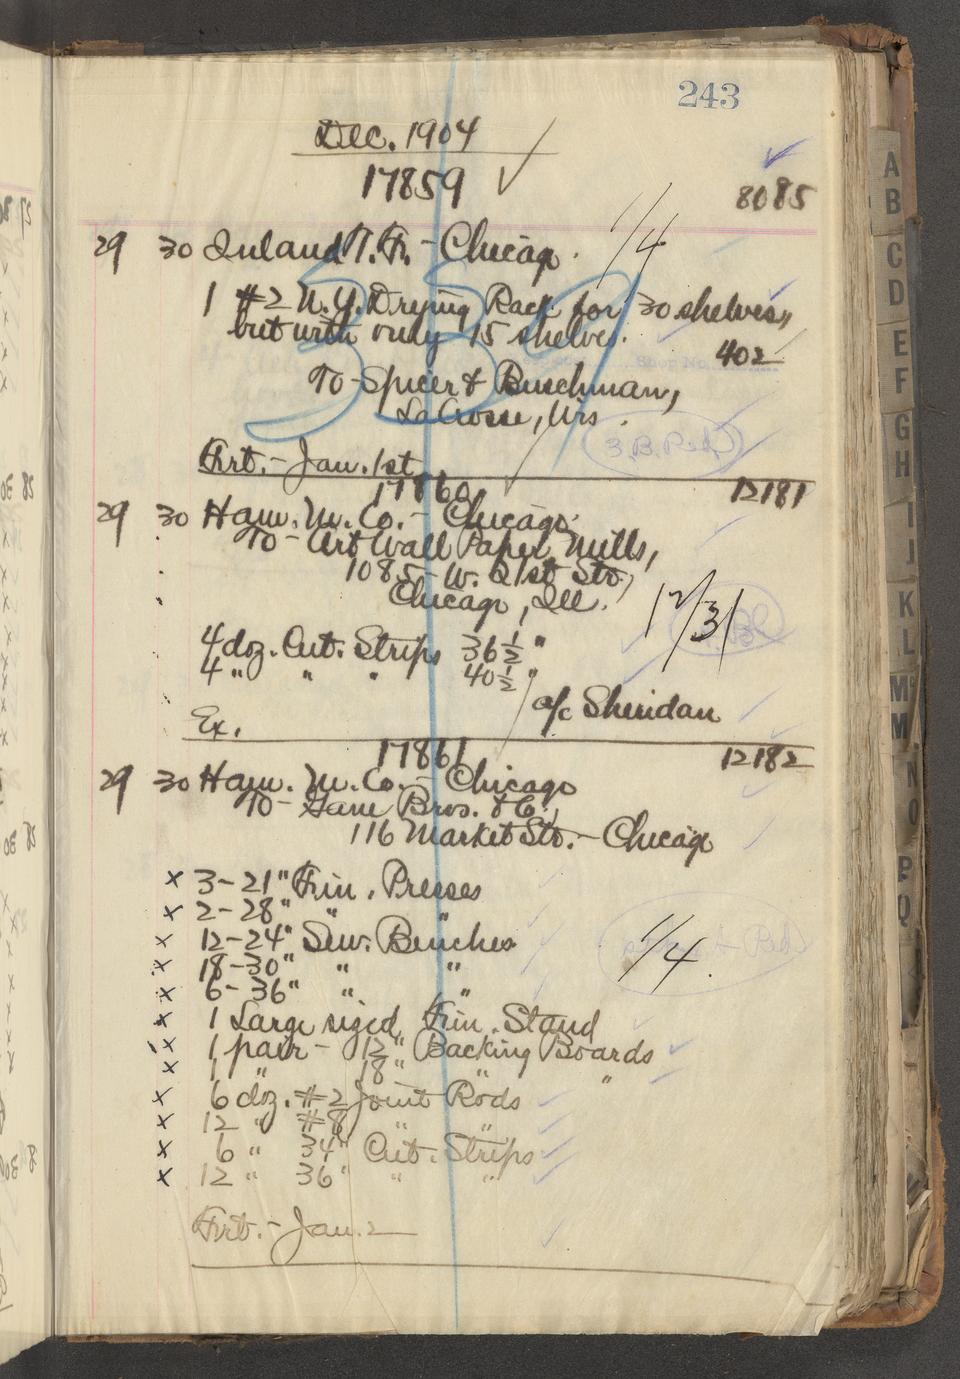 243
Dec. 1904
17859
8085
29 30 Inland T. F. - Chicago. 1/4
1 #2 N. Y. Drying Rack for 30 shelves,
but with only 15 shelves.
402
To - Spicer & Buschman,
LaCrosse, Wis.
Frt. - Jan. 1st
17860 12181
29 30 Ham. M. Co. - Chicago.
To - Art Wall Paper Mills,
1085 - W. 21st Str.,
Chicago, Ill.
12/31
4 doz. Cut. Strips 36 1/2 "
4 " " " 40 1/2 "
a/c Sheridan
Ex.
17861 12182
29 30 Ham. M. Co. - Chicago
To - Gane Bros. & Co.,
116 Market Str. - Chicago
x 3 - 21" Fin. Presses
x 2 - 28" " "
x 12 - 24" Sew. Benches
x 18 - 30" " "
x 6 - 36" " "
x 1 Large sized Fin. Stand
x 1 pair - 12" Backing Boards
x 1 " 18" " "
x 6 doz. #2 Joint Rods
x 12 " #8 " "
x 6 " 34" Cut. Strips
x 12 " 36" " "
1/4.
Frt. - Jan. 2
A
B
C
D
E
F
G
H
I
J
K
L
M
M
N
O
P
Q